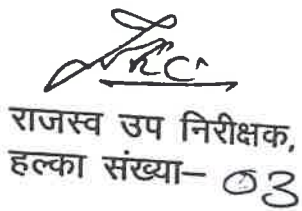 राजस्व उप निरीक्षक,
हल्का संख्या- 03